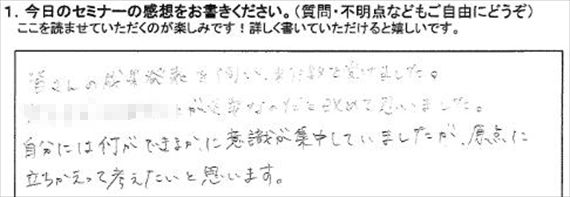 1. 今日のセミナーの感想をお書きください。(質問・不明点などもご自由にどうぞ)
ここを読ませていただくのが楽しみです!詳しく書いていただけると嬉しいです。
皆さんの成果発表を伺い、刺激を受けました。
が大事なのだと改めて思いました。
自分には何ができるかに意識が集中していましたが、原点に
立ちかえって考えたいと思います。